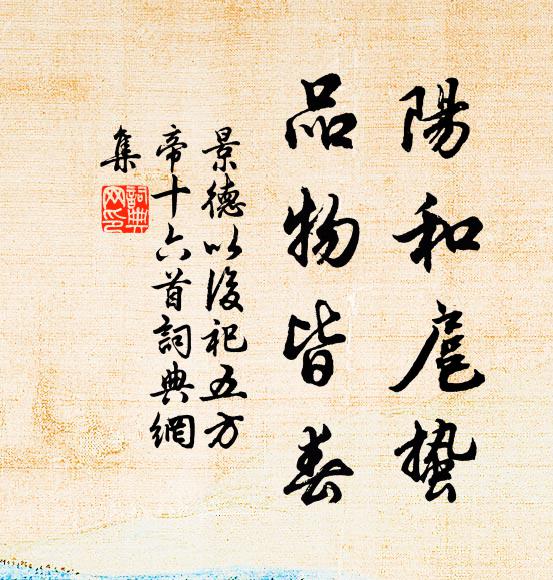 陽和應蟄
品物皆春
景德以後祀五方
帝十六首詞典網
集
詞典網印